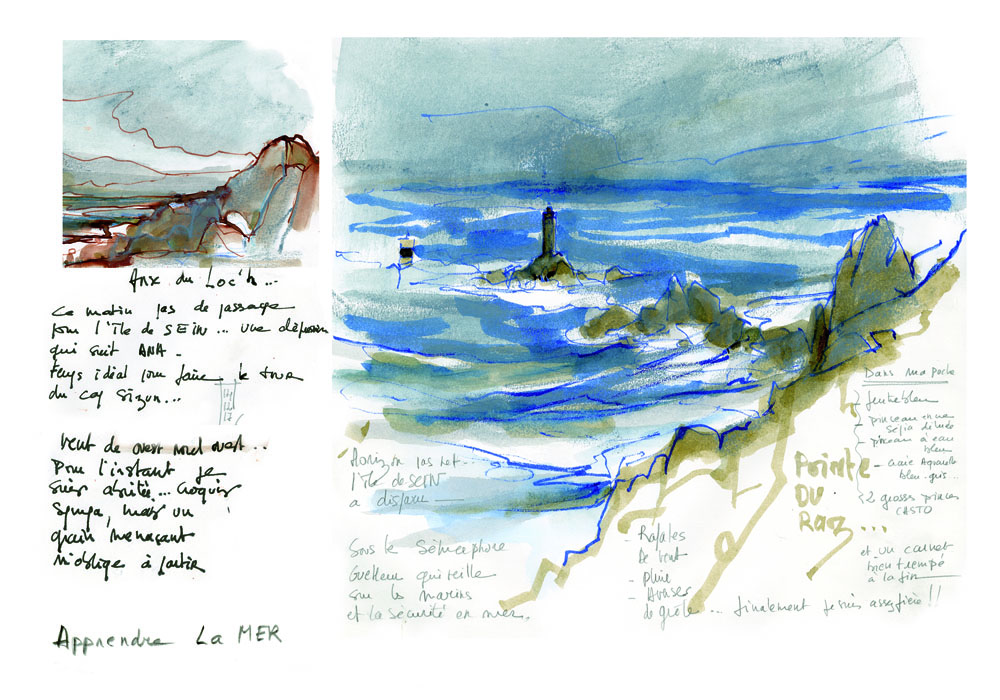 Anse du Loc'h...
Ce matin pas de passage
pour l'île de SEIN... une dépression
qui suit ANA -
temps idéal pour faire le tour
du cap Sizun...
14
12
17
Vent de ouest nord ouest...
Pour l'instant je
suis abritée... croquis
sympa, mais un
grain menaçant
m'oblige à partir
Apprendre La MER
Horizon pas net...
l'île de SEIN
a disparu
Sous le Sémaphore
Guetteur qui veille
sur les marins
et la sécurité en mer.
- Rafales
de vent
- pluie
- Averses
de grêle... finalement je suis assez fière!!
Pointe
DU
Raz...
Dans ma poche
feutre bleu
pinceau
sepia diluée
pinceau à eau
bleu
- craie Aquarelle
bleu-gris...
2 grosses pinces
CASTO
et un carnet
bien trempé
à la fin